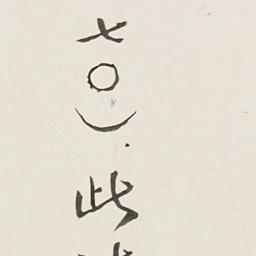 七〇）此